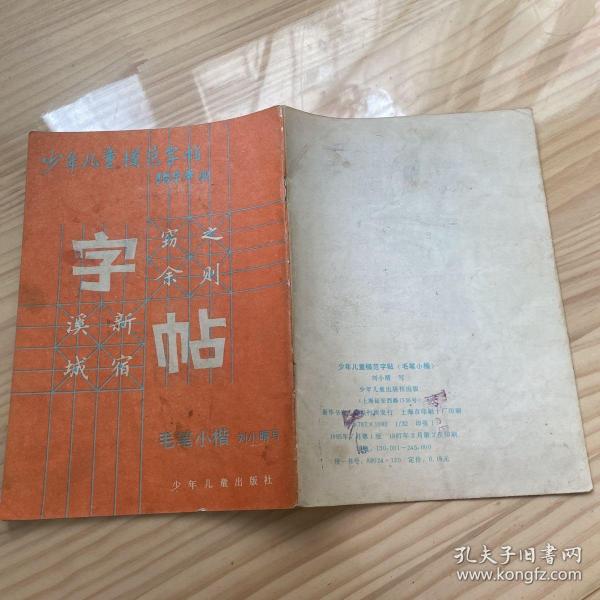 少年儿童模范字帖
字帖
窈 之
余 则
溪 新
城 宿
毛笔小楷 刘小晴书
少年儿童出版社
少年儿童模范字帖(毛笔小楷)
刘小晴 写
少年儿童出版社出版
(上海延安西路1538号)
发行 上海市印刷十厂印刷
787×1092 1/32 印张1
1987年2月第2次印刷
印数:130,001-245,000
统一书号:R8024·120 定价:0.18元
孔夫子旧书网
www.kongfz.com